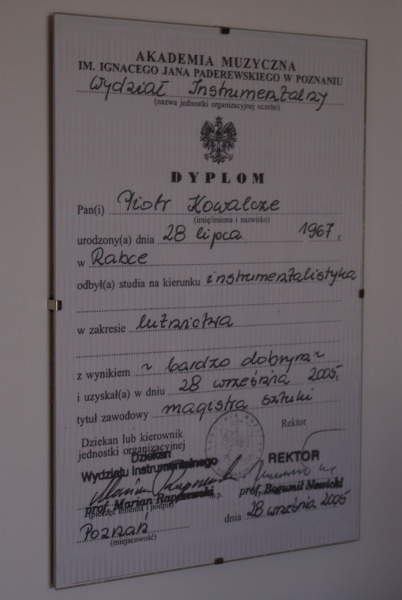 AKADEMIA MUZYCZNA
IM. IGNACEGO JANA PADEREWSKIEGO W POZNANIU
Wydział Instrumentalny
(nazwa jednostki organizacyjnej uczelni)
DYPLOM
Pan(i) Piotr Kowalcze
(imię/imiona i nazwisko)
urodzony(a) dnia 28 lipca 1967 r.
w Rabce
odbył(a) studia na kierunku instrumentalistyka
w zakresie lutnictwa
z wynikiem ~ bardzo dobrym ~
i uzyskał(a) w dniu 28 września 2005r.
tytuł zawodowy magistra sztuki
Dziekan lub kierownik
jednostki organizacyjnej
Rektor
Dziekan
Wydziału Instrumentalnego
REKTOR
prof. Marian Rapczewski
prof. Bogumił Nowicki
(pieczęć imienna i podpis)
m.p.
Poznań
(miejscowość)
dnia 28 września 2005